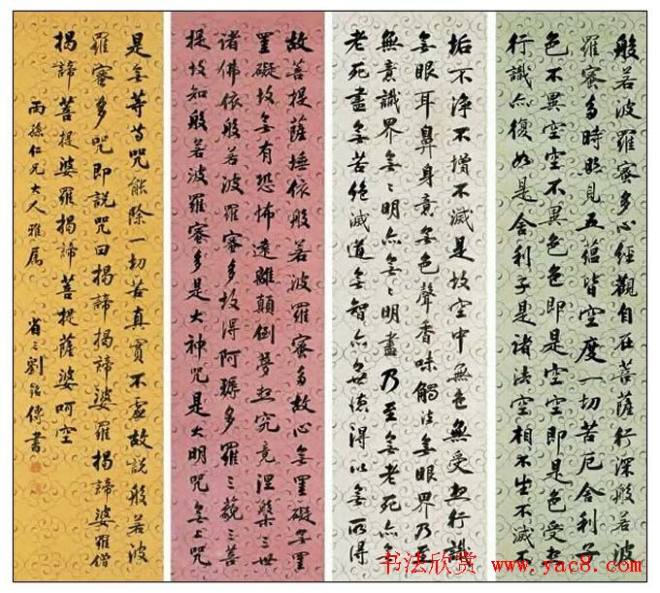 般若波羅蜜多心經觀自在菩薩行深般若波
羅蜜多時照見五蘊皆空度一切苦厄舍利子
色不異空空不異色色即是空空即是色受想
行識亦復如是舍利子是諸法空相不生不滅不
垢不淨不增不滅是故空中無色無受想行識
無眼耳鼻身意無色聲香味觸法無眼界乃至
無意識界無々明亦無々明盡乃至無老死亦無
老死盡無苦絕滅道無智亦無德得以無所得
故菩提薩埵依般若波羅蜜多故心無罣礙無罣
罣礙故無有恐怖遠離顛倒夢想究竟涅槃三世
諸佛依般若波羅蜜多故得阿耨多羅三藐三菩
提故知般若波羅蜜多是大神咒是大明咒無上咒
是無等等咒能除一切苦真實不虛故說般若波
羅蜜多咒即說咒曰揭諦揭諦婆羅揭諦婆羅僧
揭諦菩提婆羅揭諦 菩提薩婆呵空
丙孫仁兄大人雅屬
省三劉銘傳書
书法欣赏 www.yac8.com